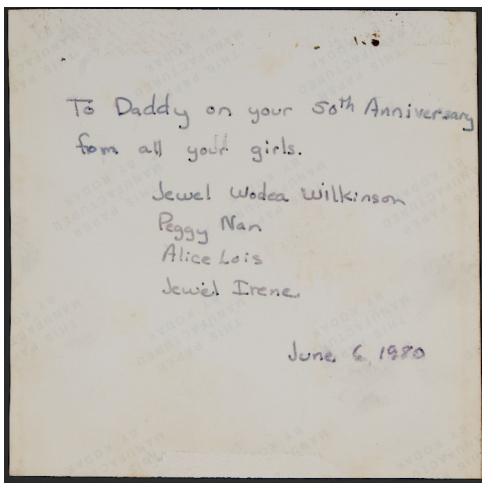 To Daddy on your 50th Anniversary
from all your girls.
Jewel Wodea Wilkinson
Peggy Nan
Alice Lois
Jewel Irene
June 6, 1980